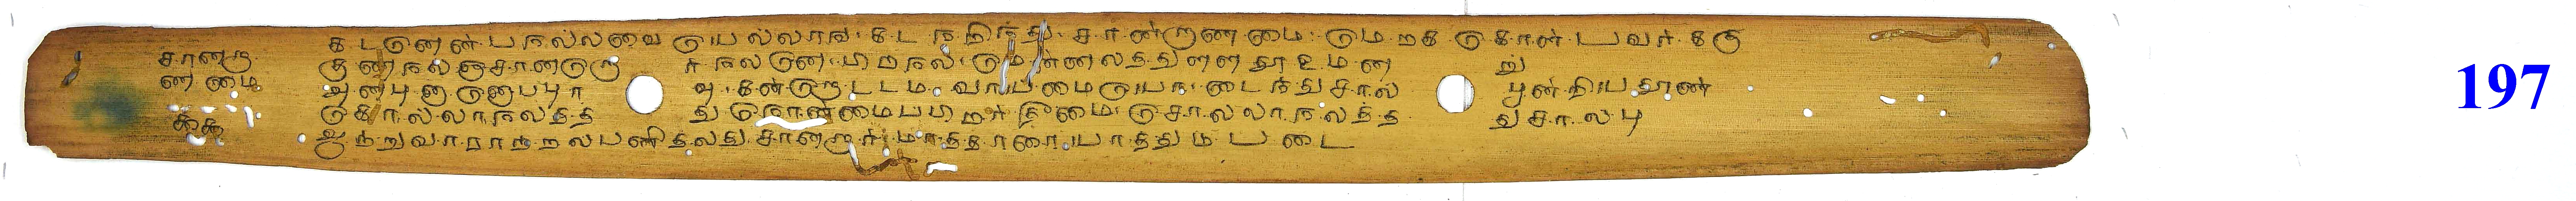 சானறா
ண்மை
௯௯
கடனென்ப நல்லவை யெல்லாங் கடனறிந்து சான்றாண்மை மெறகொள் பவர்க்கு
குணநலஞ்சானறொர் நலனெ பிறநலம் எந்நலத்துள்ளதூஉமன்று
அன்புநாணொப்புரவு கண்ணொட்டம் வாய்மையொடைந்துசால்பூன்றிய தூண்
கொல்லாநலத்தது நொன்மை பிறர் தீமை சொல்லாநலத்தது சால்பு
ஆற்றுவாராற்றல் பணிதலது சான்றொர் மாற்றாரை மாற்றும் படை
197